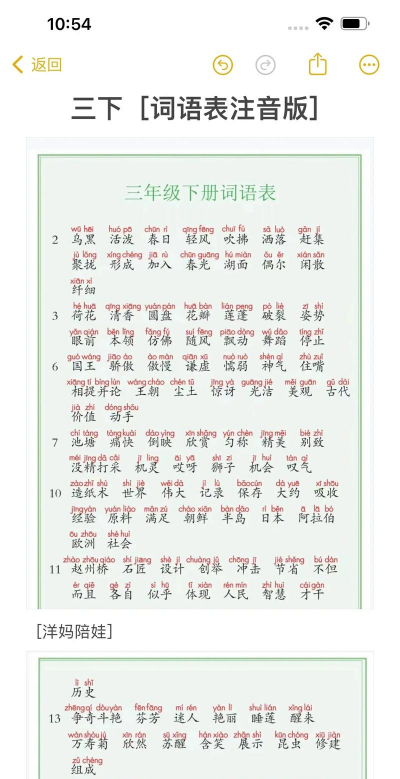 10:54
返回
三下［词语表注音版］
三年级下册词语表
wū hēi huó pō chūn rì qīng fēng chuī fú sǎ luò gǎn jí
2 乌黑 活泼 春日 轻风 吹拂 洒落 赶集
jù lǒng xíng chéng jiā rù chūn guāng hú miàn ǒu ěr xián sǎn
聚拢 形成 加入 春光 湖面 偶尔 闲散
xiān xì
纤细
hé huā qīng xiāng yuán pán huā bàn lián peng pò liè zī shì
3 荷花 清香 圆盘 花瓣 莲蓬 破裂 姿势
yǎn qián běn lǐng fǎng fú suí fēng piāo dòng wǔ dǎo tíng zhǐ
眼前 本领 仿佛 随风 飘动 舞蹈 停止
guó wáng jiāo ào ào màn qiān xū nuò ruò shén qì zhù zuǐ
6 国王 骄傲 傲慢 谦虚 懦弱 神气 住嘴
xiāng tí bìng lùn wáng cháo chén tǔ jīng yà guāng jié měi guān gǔ dài
相提并论 王朝 尘土 惊讶 光洁 美观 古代
jià zhí dòng shǒu
价值 动手
chí táng tòng kuài dào yìng xīn shǎng yún chèn jīng měi bié zhì
7 池塘 痛快 倒映 欣赏 匀称 精美 别致
méi jīng dǎ cǎi jī líng āi yā shī zi jī huì tàn qì
没精打采 机灵 哎呀 狮子 机会 叹气
zào zhǐ shù shì jiè wěi dà jì lù bǎo cún dà yuē xī shōu
10 造纸术 世界 伟大 记录 保存 大约 吸收
jīng yàn yuán liào mǎn zú cháo xiǎn bàn dǎo rì běn ā lā bó
经验 原料 满足 朝鲜 半岛 日本 阿拉伯
ōu zhōu shè huì
欧洲 社会
zhào zhōu qiáo shí jiàng shè jì chuàng jǔ chōng jī jié shěng bú dàn
11 赵州桥 石匠 设计 创举 冲击 节省 不但
ér qiě gè zì sì hū tǐ xiàn rén mín zhì huì cái gàn
而且 各自 似乎 体现 人民 智慧 才干
［洋妈陪娃］
lì shǐ
历史
zhēng qí dòu yàn fēn fāng mí rén yàn lì shuì lián xǐng lái
13 争奇斗艳 芬芳 迷人 艳丽 睡莲 醒来
wàn shòu jú xīn rán sū xǐng hán xiào zhǎn shì kūn chóng xiū jiàn
万寿菊 欣然 苏醒 含笑 展示 昆虫 修建
zǔ chéng
组成